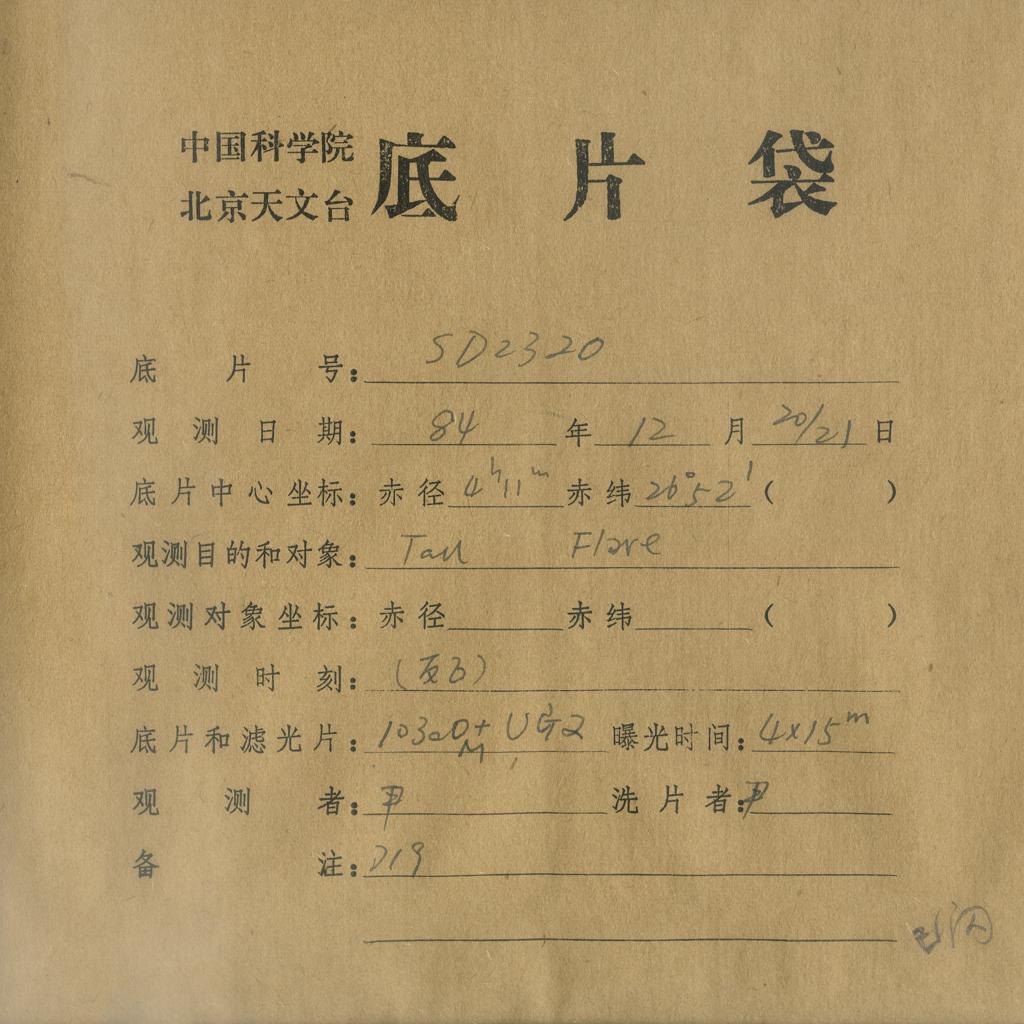 中国科学院
北京天文台
底片袋
底片号：SD2320
观测日期：84年12月20/21日
底片中心坐标：赤径4ʰ11ᵐ赤纬26°52′（ ）
观测目的和对象：Tau Flare
观测对象坐标：赤径 赤纬 （ ）
观测时刻：
底片和滤光片：103aO+UG2 曝光时间：4x15ᵐ
M
观测者： 洗片者：
备注：D19